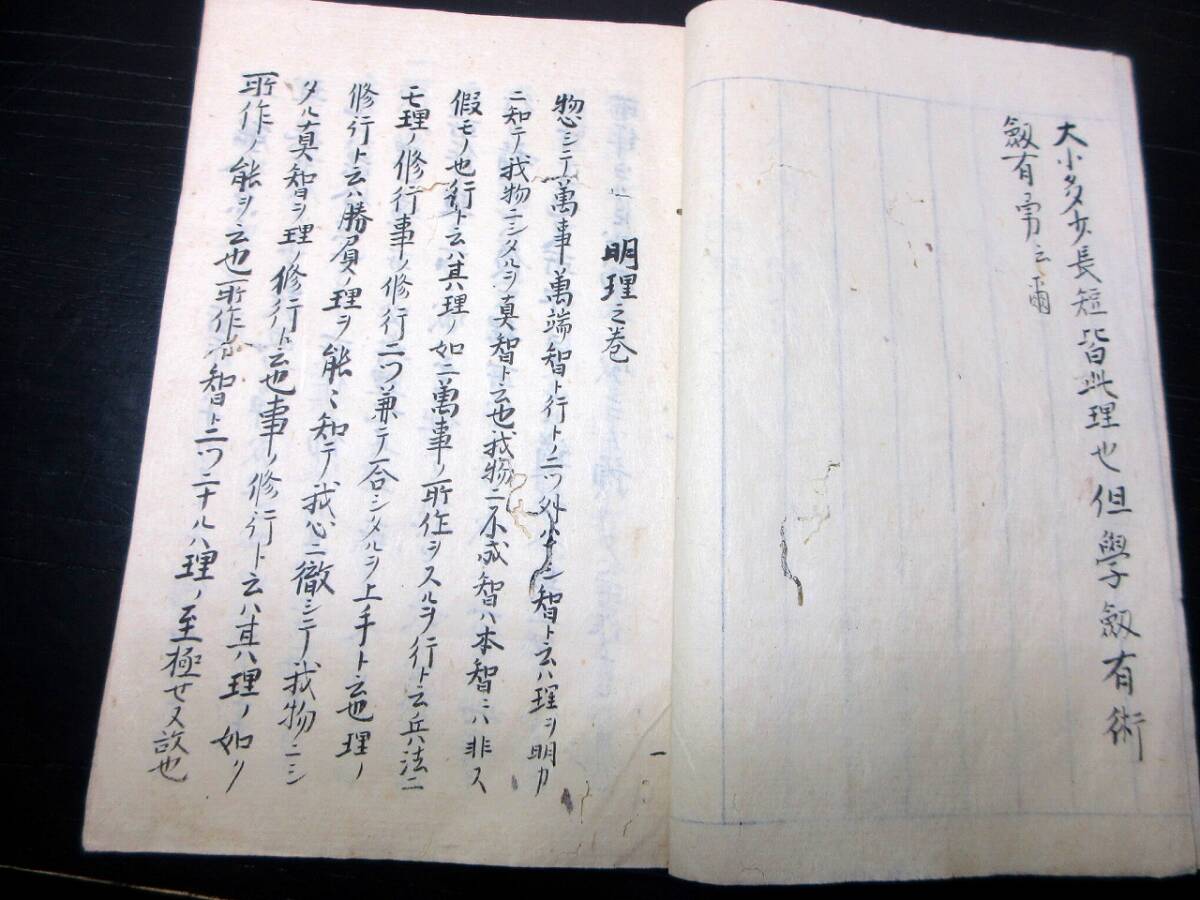 大小多少長短皆此理也但學劔有術
劔有勇云爾
明理之巻
惣シテ萬事萬端智ト行トノ二ツ外ナシ智ト云ハ理ヲ明カ
ニ知テ我物ニシタルヲ真智ト云也我物ニ不成智ハ本智ニハ非ス
假モノ也行ト云ハ其理ノ如ニ萬事ノ所作ヲスルヲ行ト云兵法ニ
モ理ノ修行事ノ修行二ツ兼テ合シタルヲ上手ト云也理ノ
修行ト云ハ勝負ノ理ヲ能々知テ我心ニ徹シテ我物ニシ
タル真智ヲ理ノ修行ト云也事ノ修行ト云ハ其理ノ如ク
所作ノ能ヲ云也所作ホ智ト二ツニナルハ理ノ至極セヌ故也
一